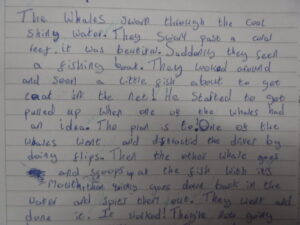 The Whales swam through the cool
shiny water. They swam past a coral
reef. it was beutiful. Suddenly they seen
a fishing boat. They looked around
and seen a little fish about to get
caat in the net! He started to get
pulled up when one of the whales had
an idea. The plan is to: One of the
whales went and distracted the diver by
doing flips. Then the other whale goes
and scoops up the fish with its
Mouth, then goes down back in the
water and spits them out. They went and
done it. It worked! They're now going